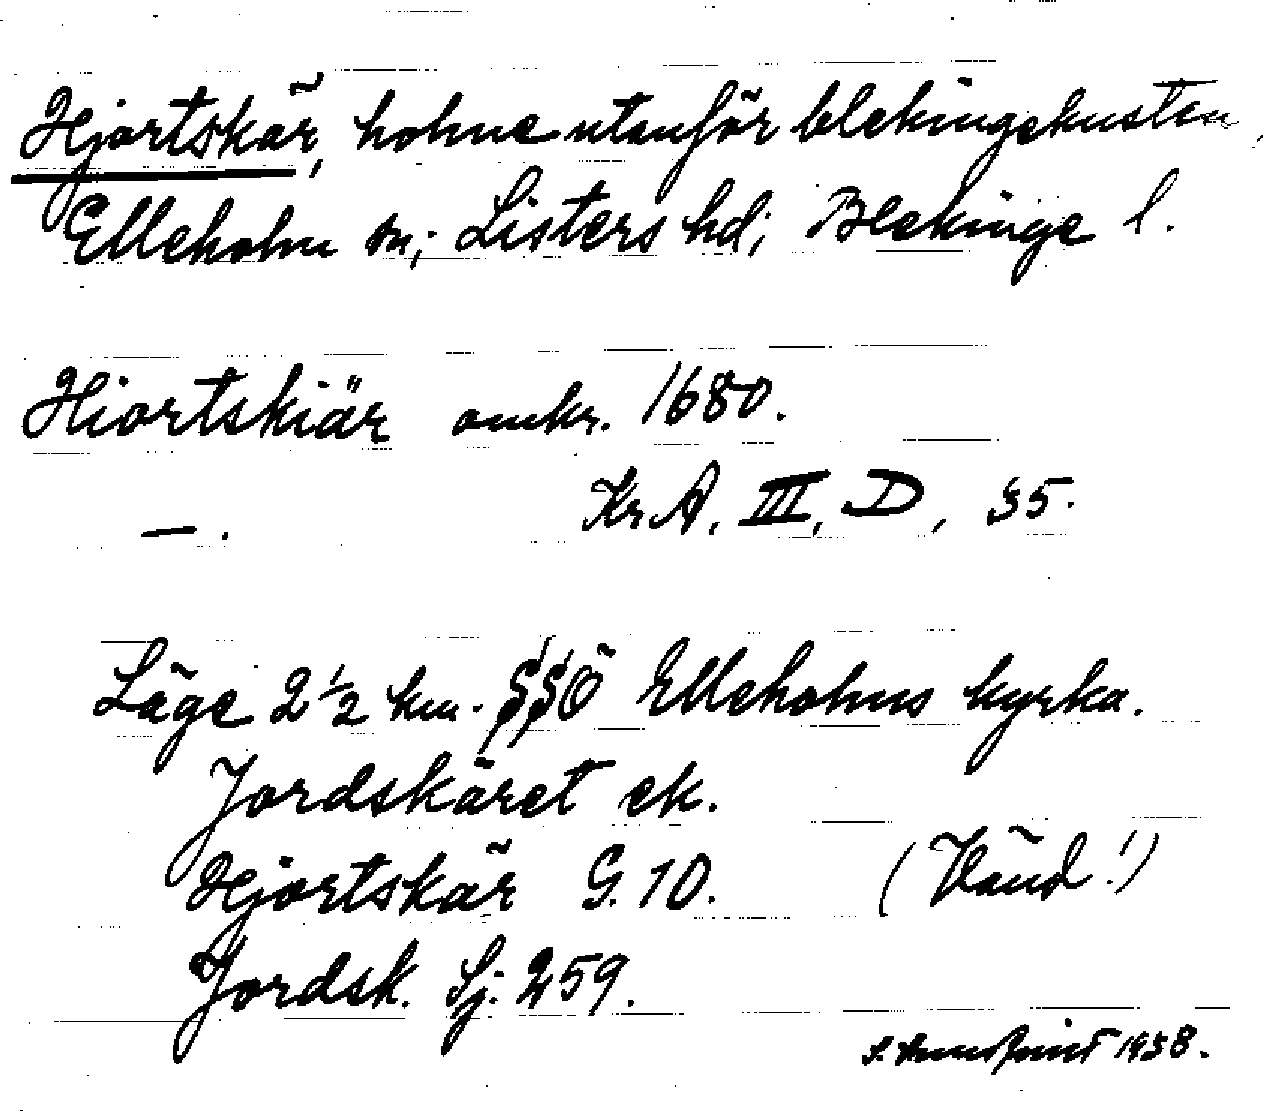 Hjortskär, holme utanför blekingekusten,
Elleholm sn; Listers hd; Blekinge l.
Hiortskiär omkr. 1680.
—. Kr A. III, D, 35.
Läge 2 1/2 km. SSÖ Elleholms kyrka.
Jordskäret ek.
Hjortskär G. 10. (Vänd!)
Jordsk. Sj. 259.
S. 1938.